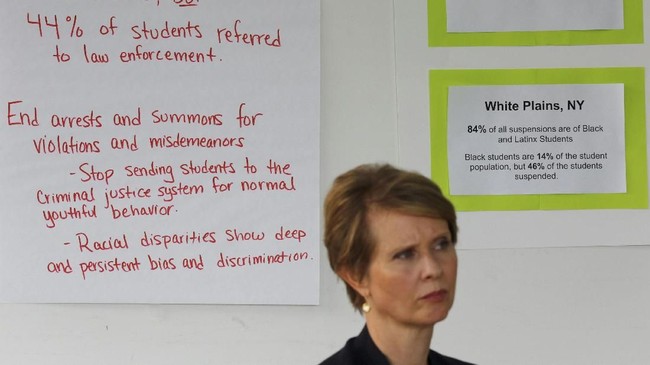 44% of students referred
to law enforcement.
End arrests and summons for
violations and misdemeanors
- Stop sending students to the
criminal justice system for normal
youthful behavior.
- Racial disparities show deep
and persistent bias and discrimination.
White Plains, NY
84% of all suspensions are of Black
and Latinx Students
Black students are 14% of the student
population, but 46% of the students
suspended.